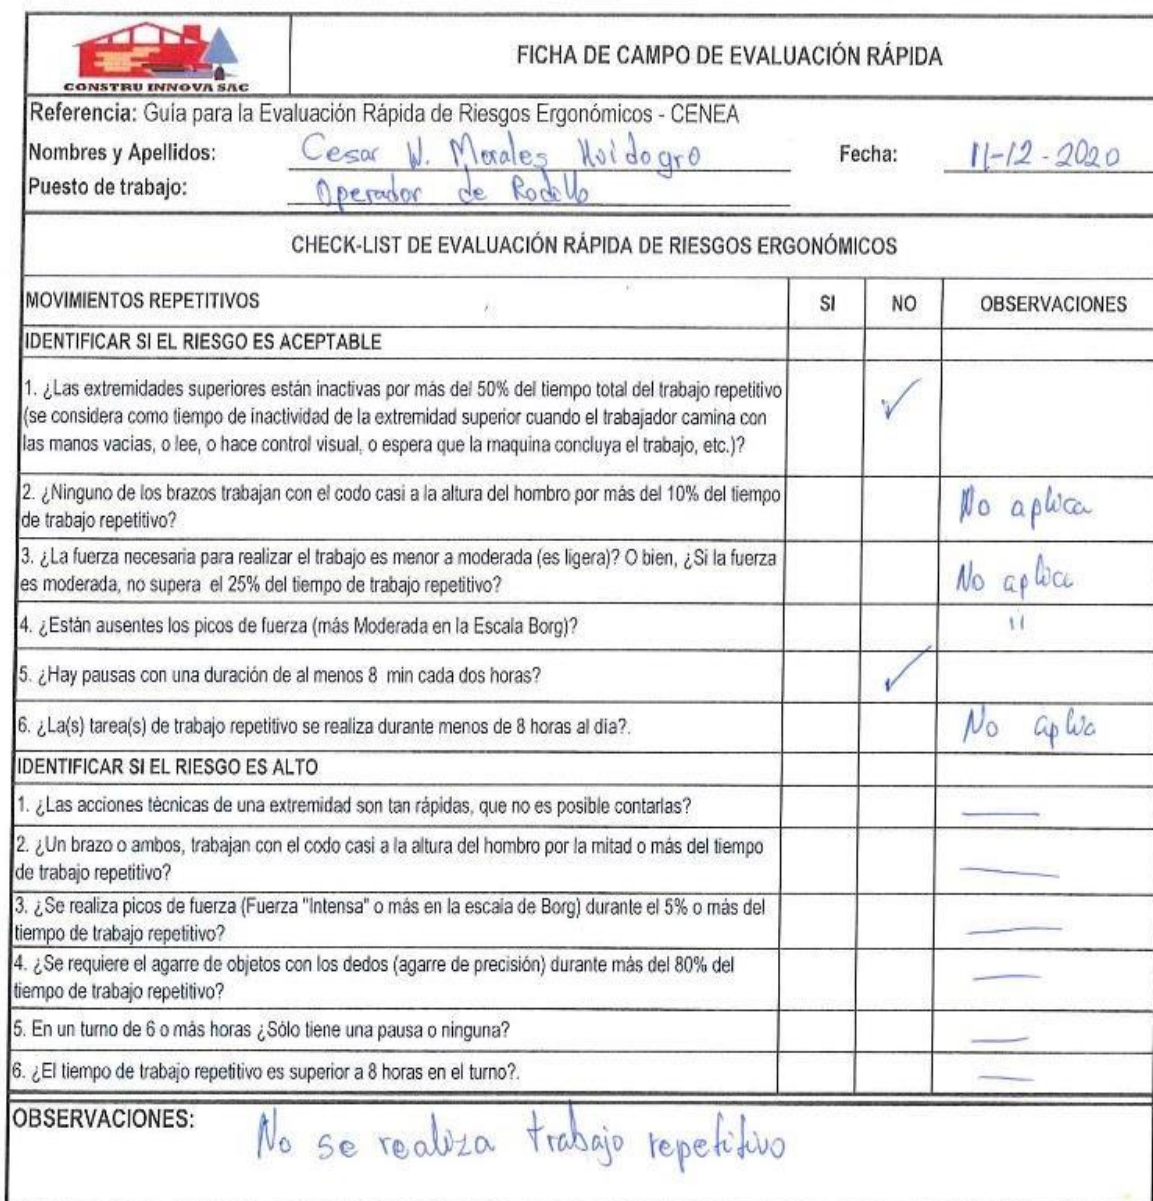 CONSTRU INNOVA SAC
FICHA DE CAMPO DE EVALUACIÓN RÁPIDA
Referencia: Guía para la Evaluación Rápida de Riesgos Ergonómicos - CENEA
Nombres y Apellidos: Cesar W. Morales Huidogro Fecha: 11-12-2020
Puesto de trabajo: Operador de Rodillo
CHECK-LIST DE EVALUACIÓN RÁPIDA DE RIESGOS ERGONÓMICOS
MOVIMIENTOS REPETITIVOS SI NO OBSERVACIONES
IDENTIFICAR SI EL RIESGO ES ACEPTABLE
1. ¿Las extremidades superiores están inactivas por más del 50% del tiempo total del trabajo repetitivo
(se considera como tiempo de inactividad de la extremidad superior cuando el trabajador camina con
las manos vacias, o lee, o hace control visual, o espera que la maquina concluya el trabajo, etc.)? ✓
2. ¿Ninguno de los brazos trabajan con el codo casi a la altura del hombro por más del 10% del tiempo
de trabajo repetitivo? No aplica
3. ¿La fuerza necesaria para realizar el trabajo es menor a moderada (es ligera)? O bien, ¿Si la fuerza
es moderada, no supera el 25% del tiempo de trabajo repetitivo? No aplica
4. ¿Están ausentes los picos de fuerza (más Moderada en la Escala Borg)? "
5. ¿Hay pausas con una duración de al menos 8 min cada dos horas? ✓
6. ¿La(s) tarea(s) de trabajo repetitivo se realiza durante menos de 8 horas al día?. No aplica
IDENTIFICAR SI EL RIESGO ES ALTO
1. ¿Las acciones técnicas de una extremidad son tan rápidas, que no es posible contarlas? —
2. ¿Un brazo o ambos, trabajan con el codo casi a la altura del hombro por la mitad o más del tiempo
de trabajo repetitivo? —
3. ¿Se realiza picos de fuerza (Fuerza "Intensa" o más en la escala de Borg) durante el 5% o más del
tiempo de trabajo repetitivo? —
4. ¿Se requiere el agarre de objetos con los dedos (agarre de precisión) durante más del 80% del
tiempo de trabajo repetitivo? —
5. En un turno de 6 o más horas ¿Sólo tiene una pausa o ninguna? —
6. ¿El tiempo de trabajo repetitivo es superior a 8 horas en el turno?. —
OBSERVACIONES: No se realiza trabajo repetitivo